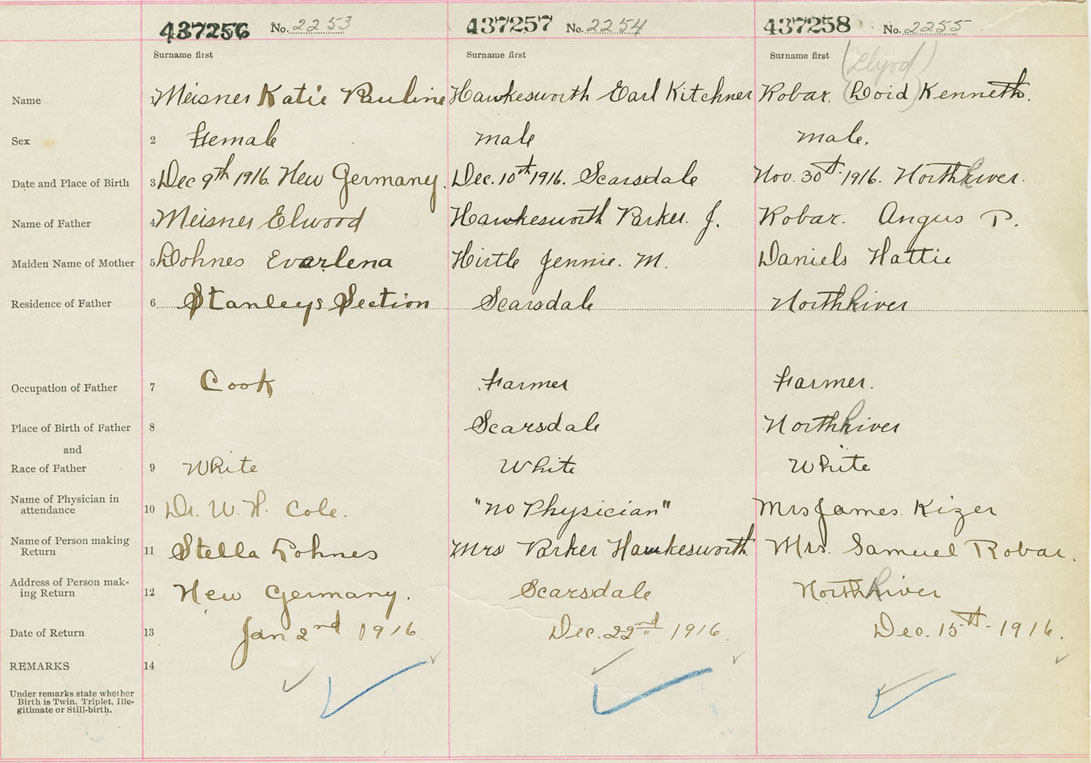 437256 No. 2253 437257 No. 2254 437258 No. 2255
Surname first Surname first Surname first (Llyod)
Name 1 Meisner Katie Pauline Hawkesworth Earl Kitchner Robar. (Loid) Kenneth.
Sex 2 Female male male.
Date and Place of Birth 3 Dec 9th 1916. New Germany. Dec. 10th 1916. Scarsdale Nov. 30th 1916. North River.
Name of Father 4 Meisner Elwood Hawkesworth Parker. J. Robar. Angus P.
Maiden Name of Mother 5 Lohnes Evarlena Hirtle Jennie. M. Daniels Hattie
Residence of Father 6 Stanleys Section Scarsdale North River
Occupation of Father 7 Cook Farmer Farmer.
Place of Birth of Father 8 Scarsdale North River
and
Race of Father 9 White White White
Name of Physician in
attendance 10 Dr. W. H. Cole. "no Physician" Mrs James Kizer
Name of Person making
Return 11 Stella Lohnes Mrs Parker Hawkesworth Mrs. Samuel Robar.
Address of Person mak-
ing Return 12 New Germany. Scarsdale North River
Date of Return 13 Jan 2nd 1916 Dec. 22nd 1916. Dec. 15th 1916.
REMARKS 14
Under remarks state whether
Birth is Twin, Triplet, Ille-
gitimate or Still-birth.